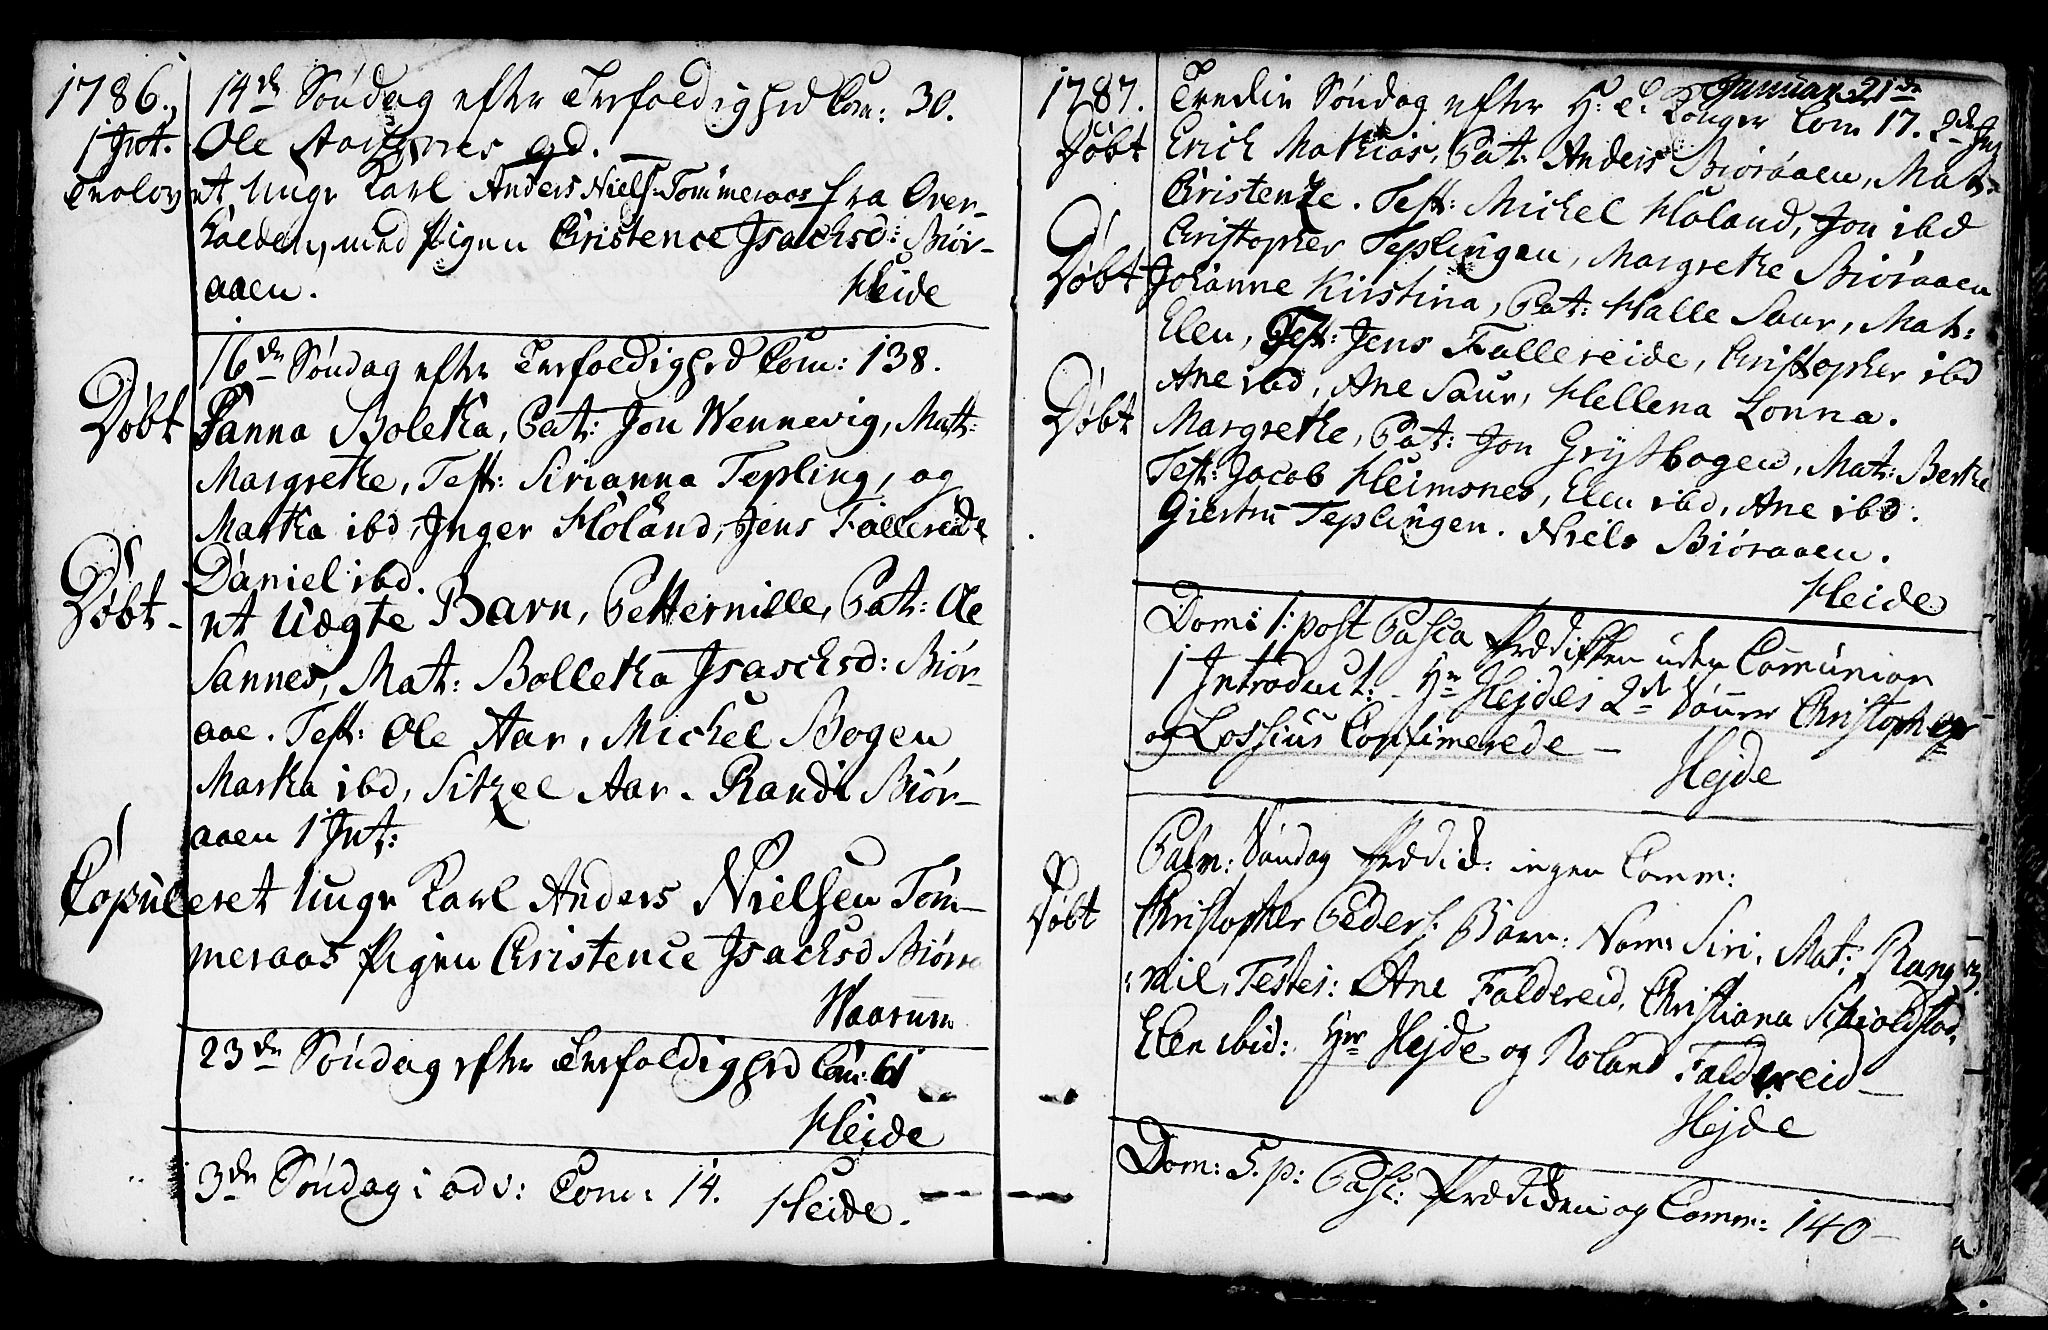 1786.
14de Søndag efter Trefoldighed Com: 30.
1 Int.
Ole Aargnes gd.
Trolov et unge Karl Anders Niels: Tømmeraas fra Over-
halden, med Pigen Christence Isachsd: Biør-
aaen. Heide
16de Søndag efter Trefoldighed Com: 138.
Døbt
Hanna Boletha, Pat: Jon Wennevig, Mat:
Margrethe, Test: Sirianna Tepling, og
Martha ibd, Inger Høland, Jens Fallereide
Daniel ibd.
Døbt
et Uægte Barn, Petternille, Pat: Ole
Sannes, Mat: Bolletha Isachsd: Biør-
aae. Test: Ole Aar, Michel Bogen
Martha ibd, Sitzel Aar. Randi Biør-
aaen 1 Int:
Copuleret unge Karl Anders Nielsen Tøm-
meraas Pigen Christence Isachsd Biøra
Waarum
23de Søndag efter Trefoldighed Com: 61
Heide
3de Søndag i adv: Com: 14.
Heide.
1787.
Januar 21de
Tredie Søndag efter H: 3 Konger Com 17. 2de Int
Døbt
Erich Mathias, Pat: Anders Biøraaen, Mat:
Christenze. Test: Michel Høland, Jon ibd
Christopher Teplingen, Margrethe Biøraaen
Døbt
Johanne Kirstina, Pat: Halle Saur, Mat:
Elen, Test: Jens Fallereide, Christopher ibd
Ane ibd, Ane Saur, Hellena Lonna.
Døbt
Margrethe, Pat: Jon Grystbogen, Mat: Berthe
Test: Jacob Heimsnes, Elen ibd, Ane ibd.
Giertru Teplingen. Niels Biøraaen.
Heide
Dom: 1: post Pasca Prædiken uden Communion
1 Introduct: Hr Hejdes 2de Sønner Christopher
og Lossius Confimerede —
Hejde
Palm: Søndag Prædik: ingen Comm:
Døbt
Christopher Peders: Barn: Nom: Siri, Mat: Rang-
nil, Testes: Ane Faldereid, Christiana Schioldstad,
Elen ibid: Hr Hejde og Roland Faldereid —
Hejde
Dom: 5. p: Pasc: Prædiken og Comm: 140 —